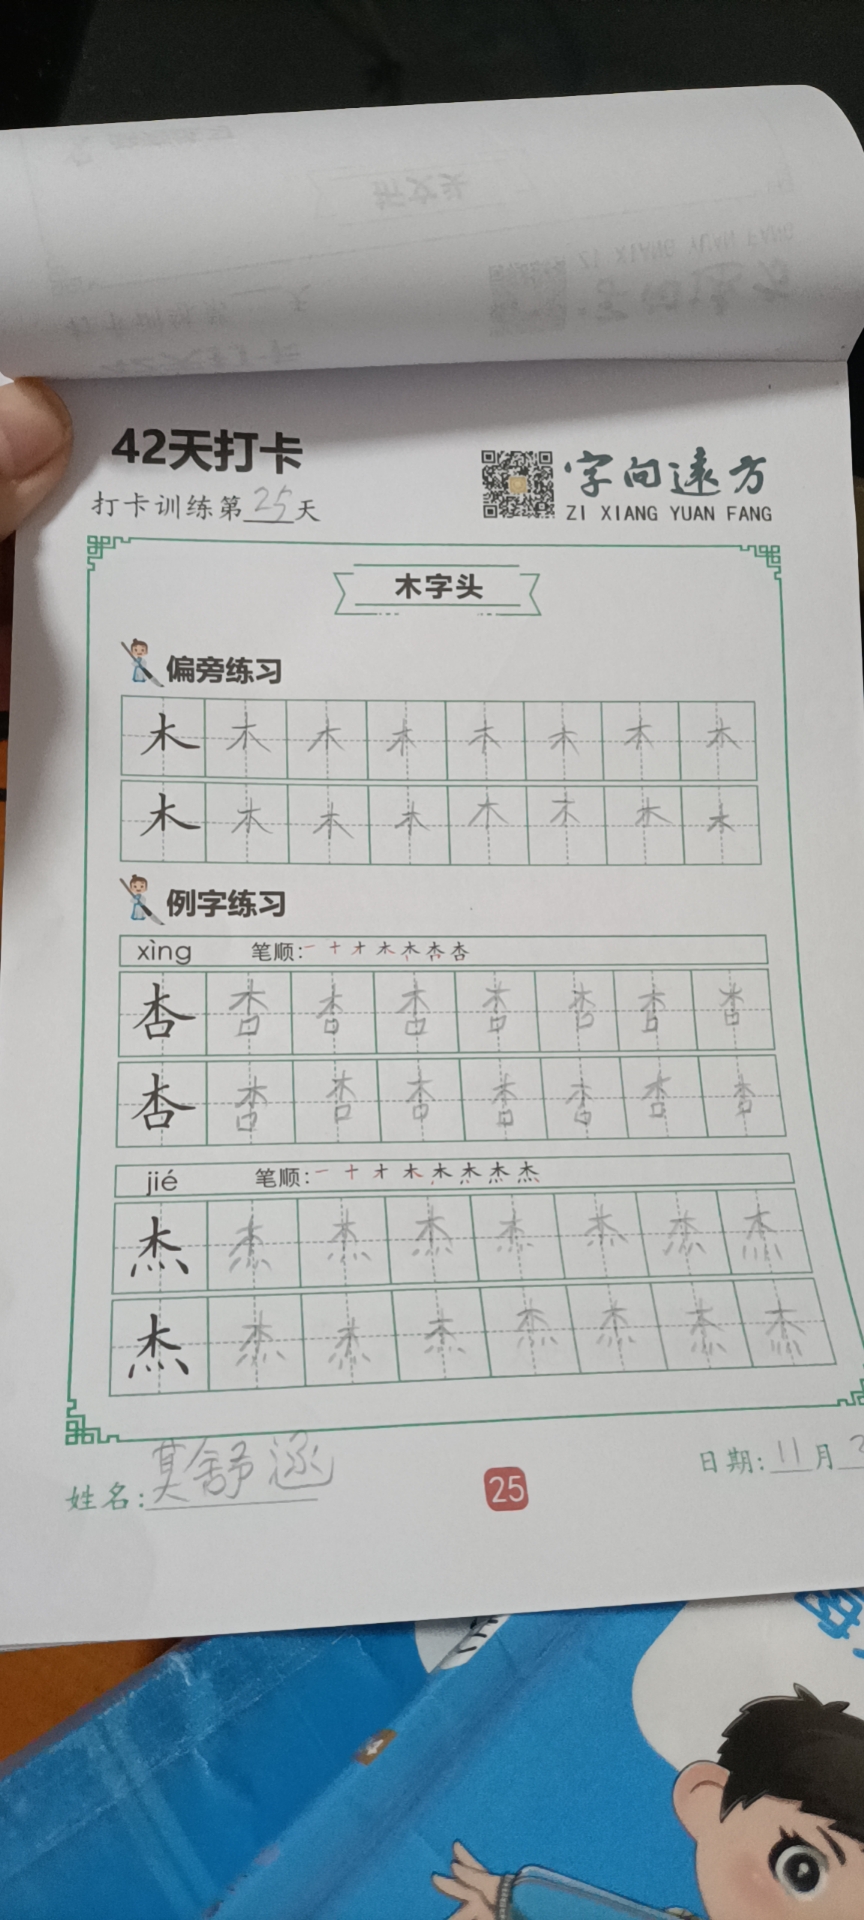 42天打卡
字向远方
打卡训练第25天
ZI XIANG YUAN FANG
木字头
偏旁练习
木 木 木 木 木 木 木 木
木 木 木 木 木 木 木 木
例字练习
xìng 笔顺:一 十 才 木 木 杏 杏
杏 杏 杏 杏 杏 杏 杏 杏
杏 杏 杏 杏 杏 杏 杏 杏
jié 笔顺:一 十 才 木
杰 杰 杰 杰 杰 杰 杰 杰
杰 杰 杰 杰 杰 杰 杰 杰
姓名:莫舒涵
25
日期:11月